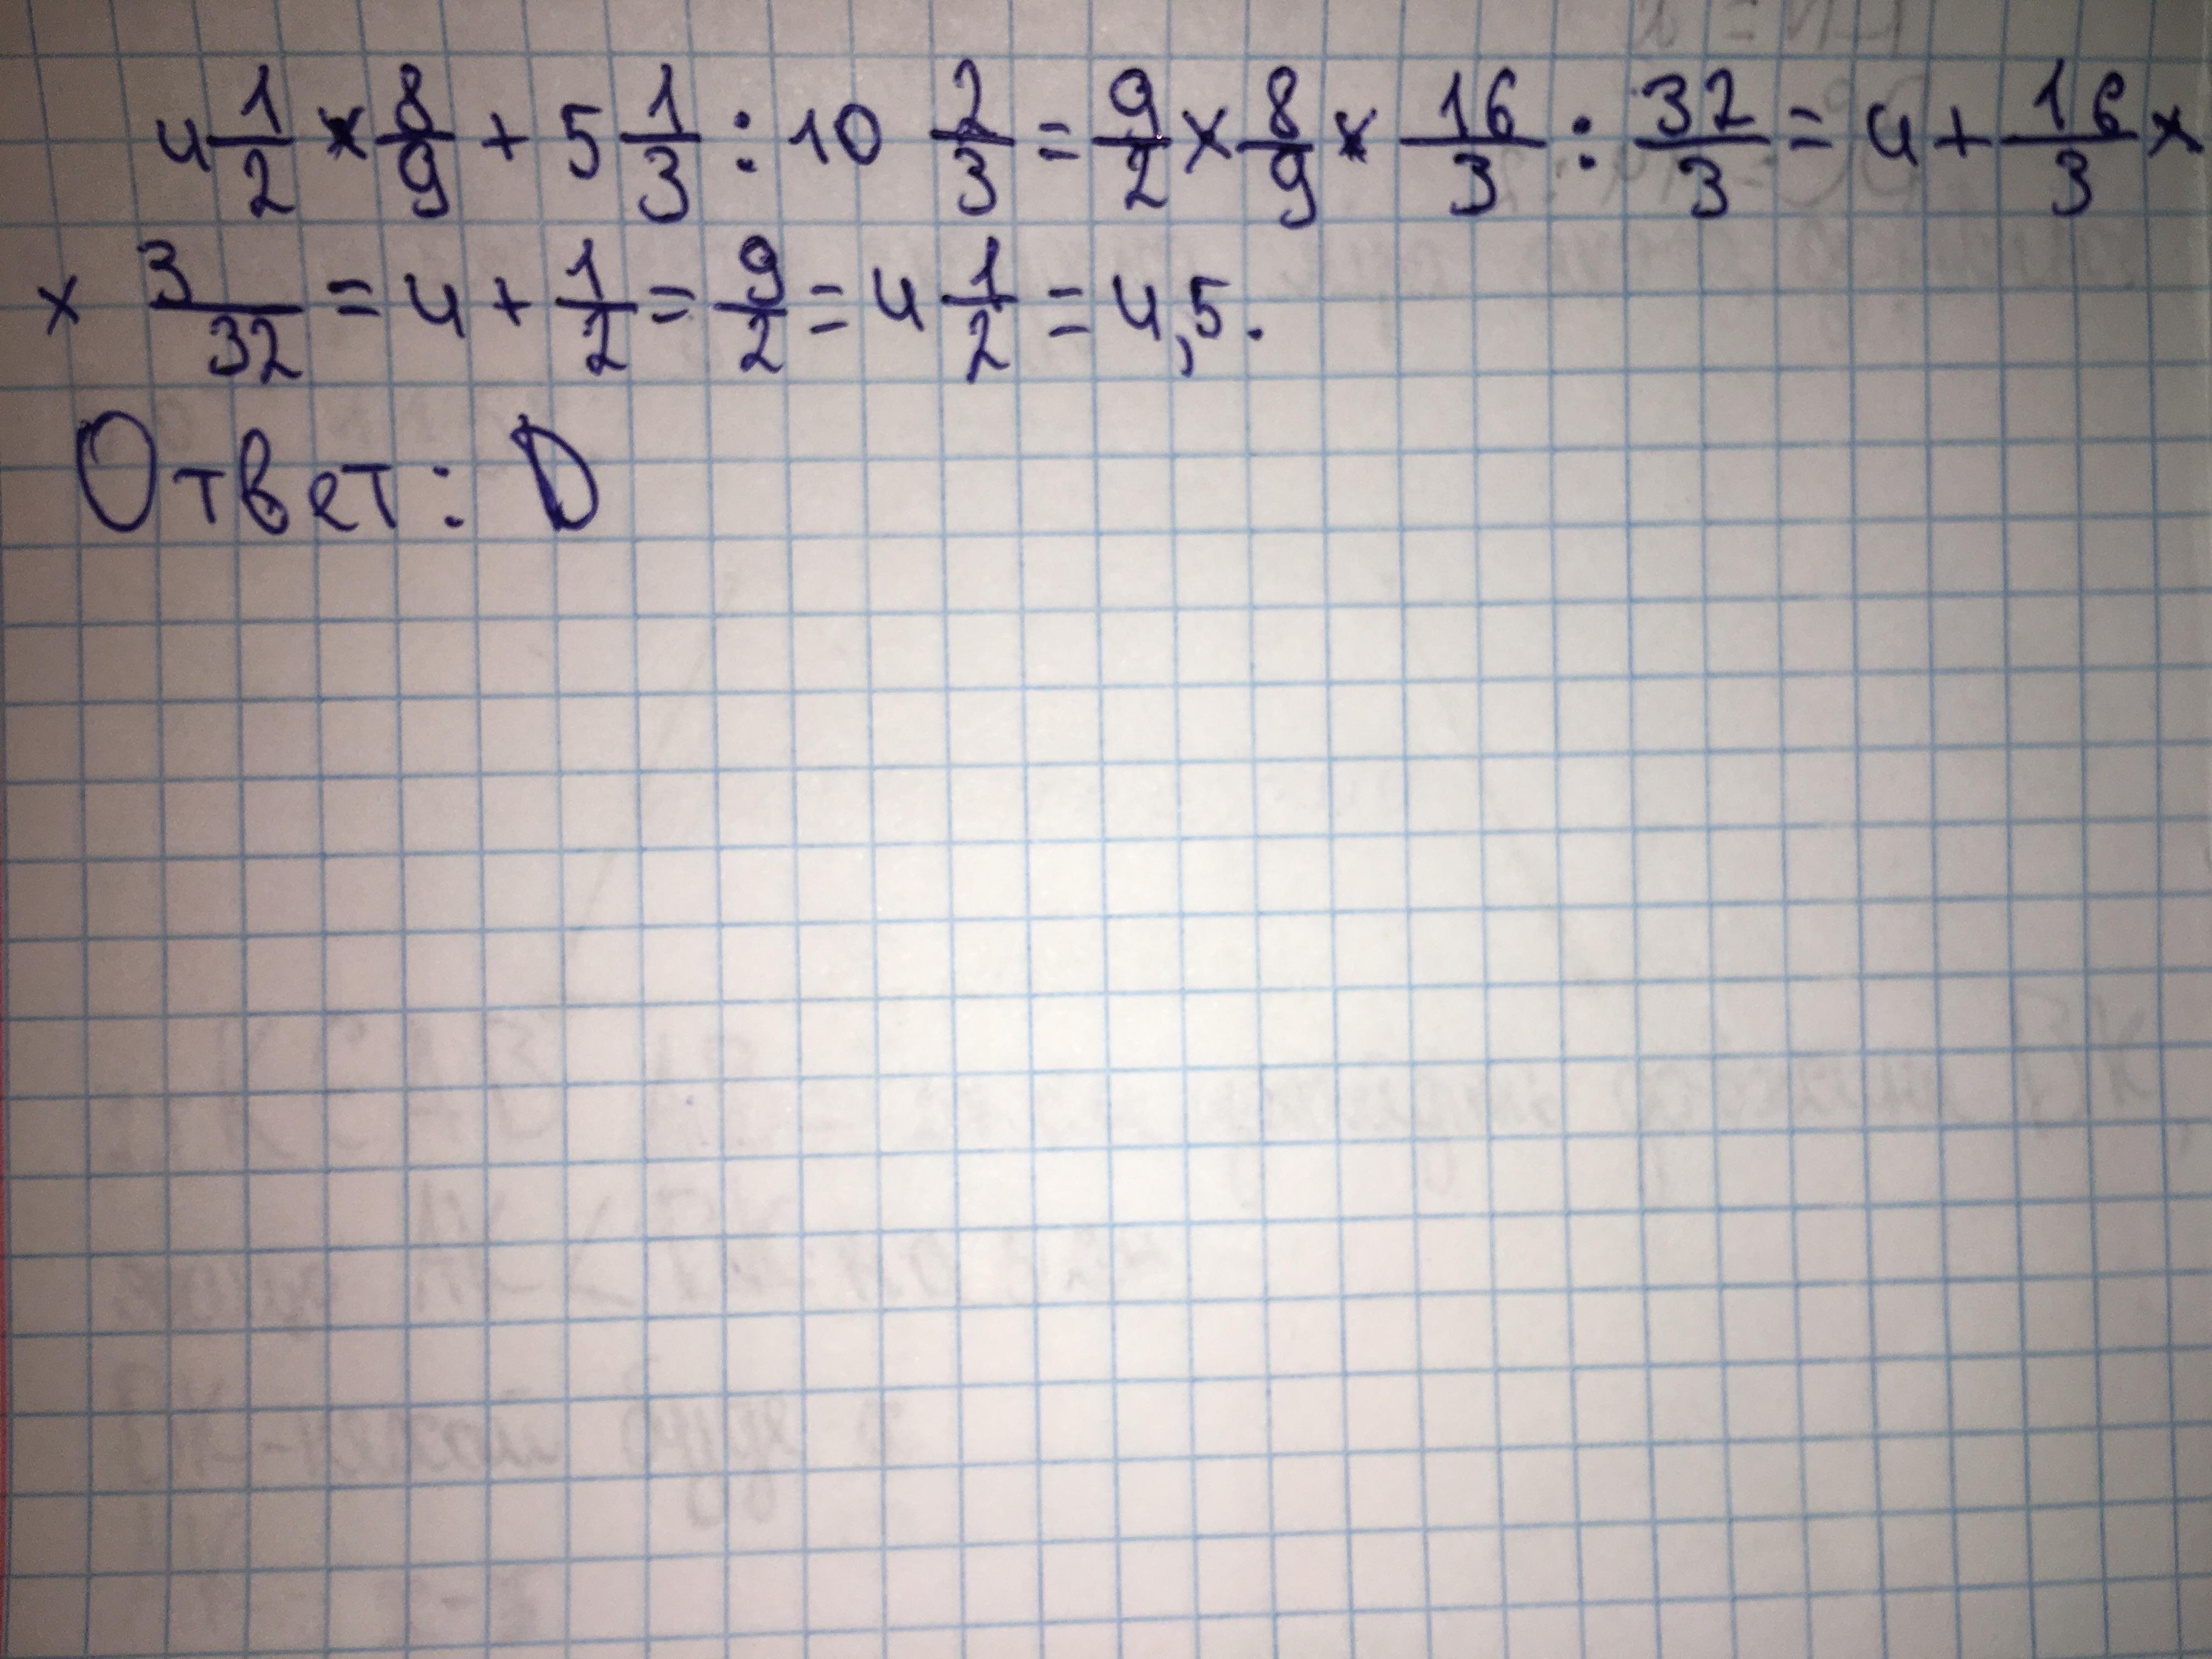 4 1/2 × 8/9 + 5 1/3 : 10 2/3 = 9/2 × 8/9 × 16/3 : 32/3 = 4 + 16/3 ×
× 3/32 = 4 + 1/2 = 9/2 = 4 1/2 = 4,5.
Ответ: D